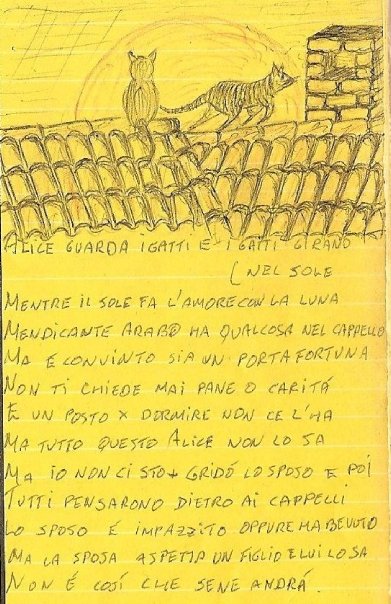 ALICE GUARDA I GATTI E I GATTI GIRANO
(NEL SOLE
MENTRE IL SOLE FA L'AMORE CON LA LUNA
MENDICANTE ARABO HA QUALCOSA NEL CAPPELLO
MA E CONVINTO SIA UN PORTAFORTUNA
NON TI CHIEDE MAI PANE O CARITÁ
E UN POSTO X DORMIRE NON CE L'HA
MA TUTTO QUESTO ALICE NON LO SA
MA IO NON CI STO + GRIDÓ LO SPOSO E POI
TUTTI PENSARONO DIETRO AI CAPPELLI
LO SPOSO É IMPAZZITO OPPURE HA BEVUTO
MA LA SPOSA ASPETTA UN FIGLIO E LUI LO SA
NON É COSÍ CHE SENE ANDRÁ.